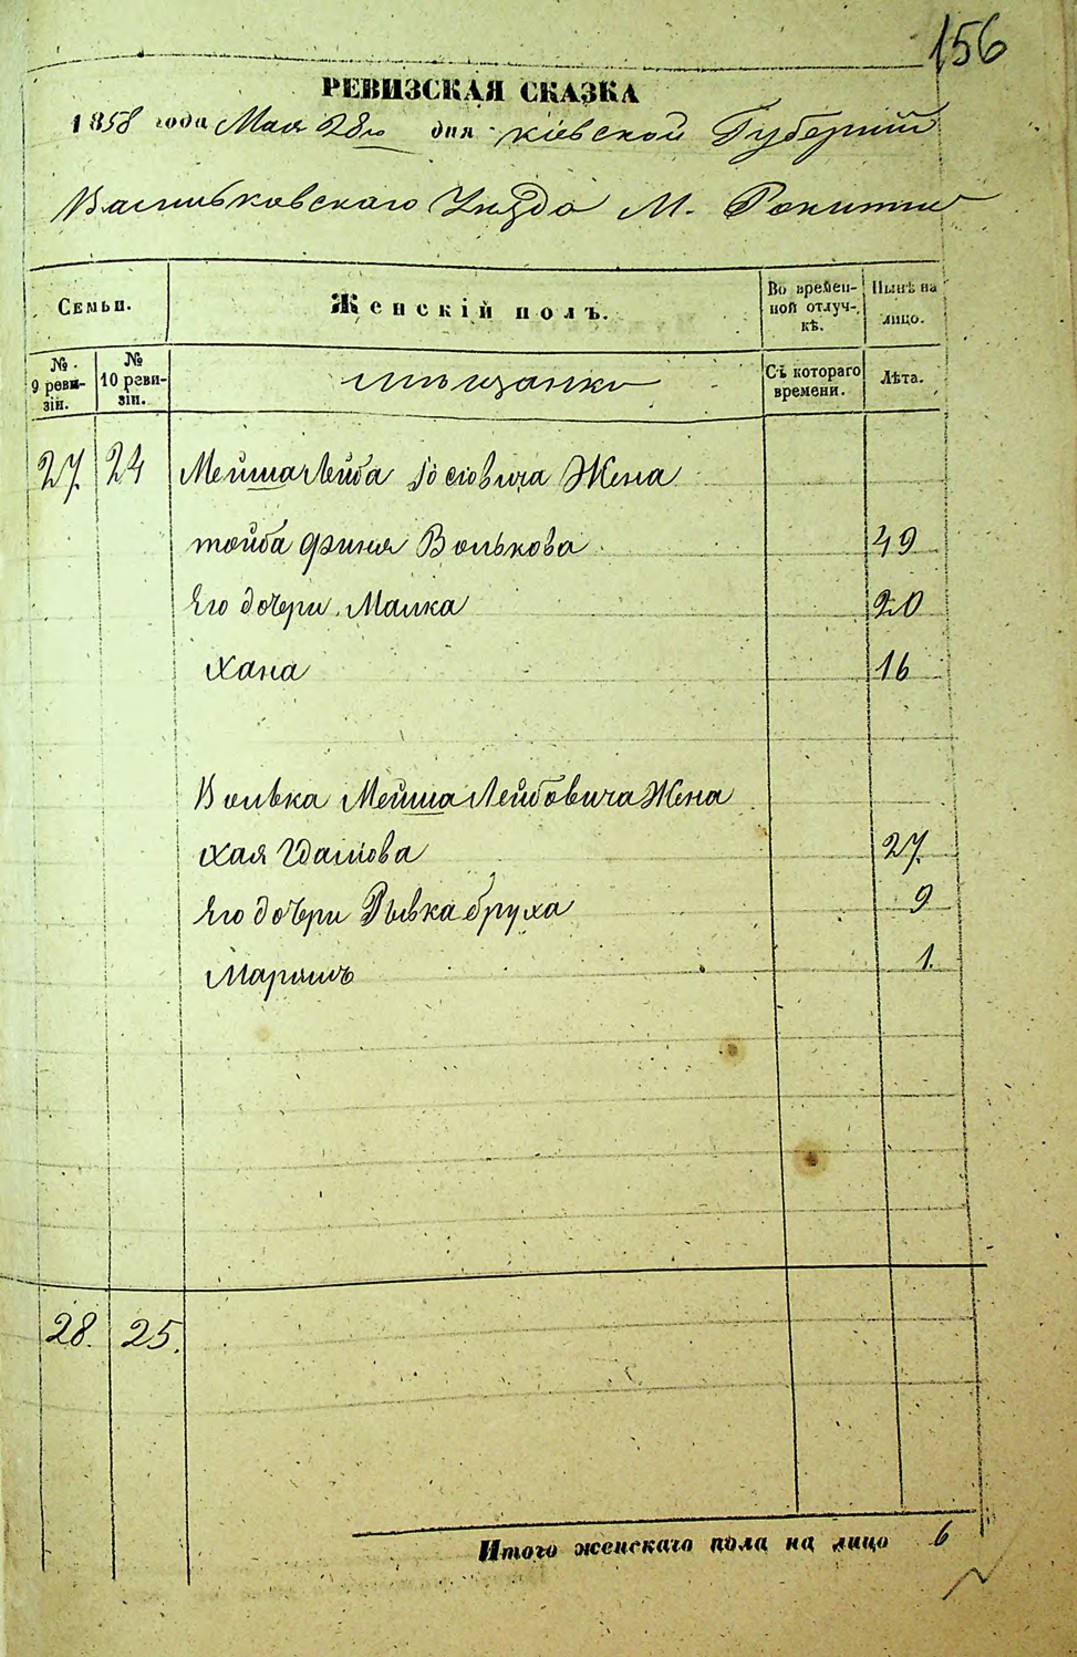 156
РЕВИЗСКАЯ СКАЗКА
1858 года Мая 28го дня Кіевской Губерніи
Васильковскаго Уѣзда М. Рокитни
Семьи.
Женскій полъ.
Во времен-
ной отлуч-
кѣ.
Нынѣ на
лицо.
№
9 реви-
зіи.
№
10 реви-
зіи.
мѣщанки
Съ котораго
времени.
Лѣта.
27. 24 Мейша Лейба Іосіовича Жена
тойба Фриня Волькова 49
Его дочери Малка 20
Хана 16
Волька Мейша Лейбовича Жена
Хая 27.
Его дочери Рывка бруха 9
Маріямъ 1.
28. 25.
Итого женскаго пола на лицо 6